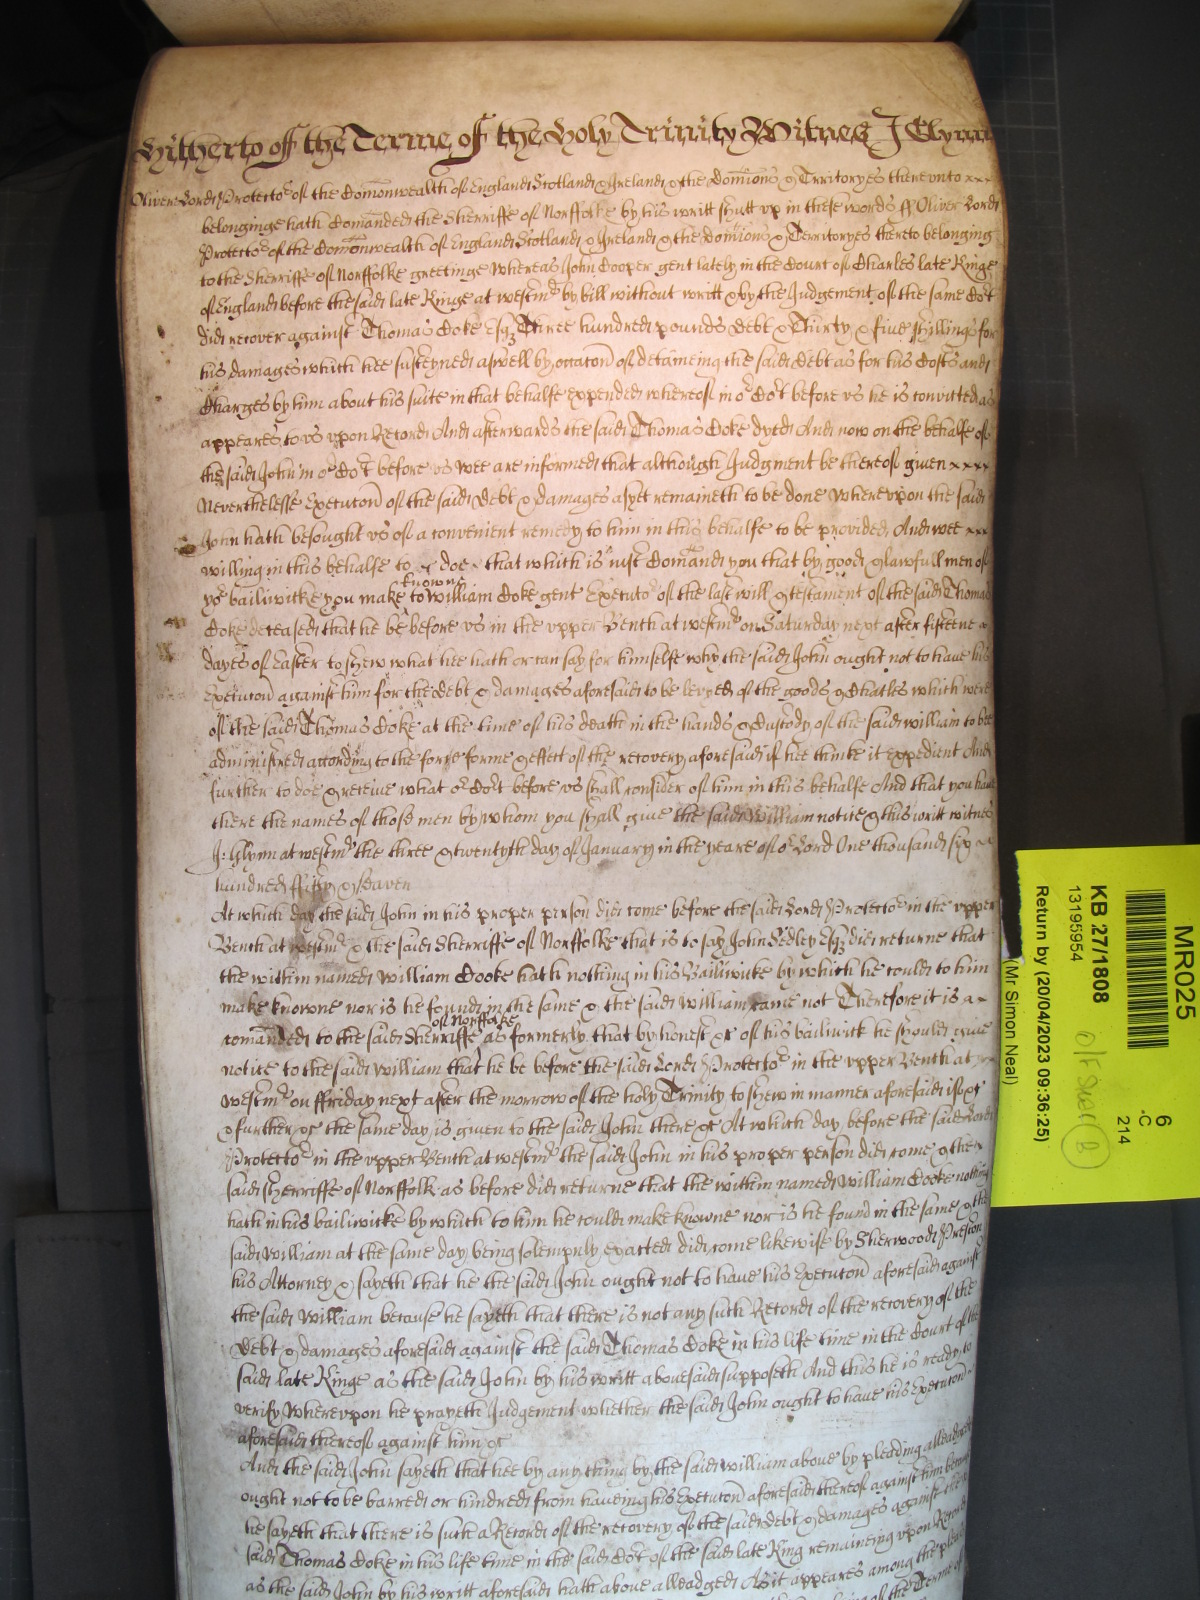 Hitherto off the Terme of the Holy Trinity Witnes J Glynn
Oliver Lord Protector of the Comonwealth of England Scotland & Ireland & the Dominions & Territoryes thereunto
belonginge hath Comanded the Sherriffe of Norffolke by his writt shutt up in these words ff Oliver Lord
Protector of the Comonwealth of England Scotland & Ireland & the Dominions & Territoryes thereto belonging
to the Sherriffe of Norffolke greetinge Whereas John Cooper gent lately in the Court of Charles late Kinge
of England before the said late Kinge at westmr by bill without writt & by the Judgement of the same Cort
did recover against Thomas Coke Esqr Three hundred pounds debt & Thirty & five shillings for
his damages which hee susteyned aswell by occacon of deteineing the said debt as for his Costs and
Charges by him about his suite in that behalfe expended whereof in or Cort before us he is convicted as
appeares to us upon Record And afterwards the said Thomas Coke dyed And now on the behalfe of
the said John in or Cort before us wee are informed that although Judgment be thereof given
Neverthelesse Execucon of the said debt & damages as yet remaineth to be done Whereupon the said
John hath besought us of a convenient remedy to him in this behalfe to be provided And wee
willing in this behalfe to doe that which is just Comand you that by good & lawfull men of
yor bailiwicke you make knowne to William Coke gent Executor of the last will & testament of the said Thomas
Coke deceased that he be before us in the upper Bench at westmr on Saturday next after fifteene
dayes of Easter to shew what hee hath or can say for himselfe why the said John ought not to have his
Execucon against him for the debt & damages aforesaid to be levyed of the goods & Chatles which were
of the said Thomas Coke at the time of his death in the hands & Custody of the said William to bee
administred according to the force forme & effect of the recovery aforesaid if hee thinke it expedient And
further to doe & receive what or Cort before us shall consider of him in this behalfe And that you have
there the names of those men by whom you shall give the said William notice & this writt witnes
J: Glynn at westmr the three & twentyth day of January in the yeare of or Lord One thousand six
hundred ffifty & Seaven
At which day the said John in his proper person did come before the said Lord Protector in the upper
Bench at westmr & the said Sherriffe of Norffolke that is to say John Sedley Esqr did returne that
the within named William Cooke hath nothing in his Bailiwicke by which he could to him
make knowne nor is he found in the same & the said William came not Therefore it is
comanded to the said Sherriffe of Norffolke as formerly that by honest &c of his bailiwick he should give
notice to the said William that he be before the said Lord Protector in the upper Bench at
westmr on ffriday next after the morrow of the holy Trinity to shew in manner aforesaid if &c
& further &c the same day is given to the said John there &c At which day before the said Lord
Protector in the upper Bench at westmr the said John in his proper person did come & the
said Sherriffe of Norffolk as before did returne that the within named William Cooke nothing
hath in his bailiwicke by which to him he could make knowne nor is he found in the same & the
said William at the same day being solempnly exacted did come likewise by Sherwood Preston
his Attorney & sayeth that he the said John ought not to have his Execucon aforesaid against
the said William because he sayeth that there is not any such Record of the recovery of the
debt & damages aforesaid against the said Thomas Coke in his life time in the Court of the
said late Kinge as the said John by his writt abovesaid supposeth And this he is ready to
verify Whereupon he prayeth Judgement whether the said John ought to have his Execucon
aforesaid thereof against him &c
And the said John sayeth that hee by any thing by the said William above by pleading alleadged
ought not to be barred or hindred from haveing his Execucon aforesaid thereof against him because
he sayeth that there is such a Record of the recovery of the said debt & damages against the
said Thomas Coke in his life time in the said Cort of the said late King remaineing upon Record
as the said John by his writt aforesaid hath above alleadged As it appeares among the pleas
of the Terme of
MR025
6
-C
214
KB 27/1808
13195954
Return by (20/04/2023 09:36:25)
(Mr Simon Neal)